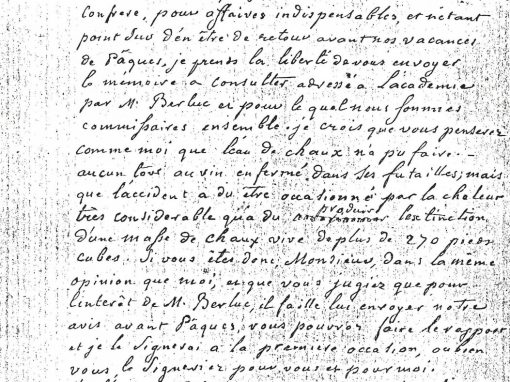 Confrere, pour affaires indispensables, et n'étant
point sur d'en être de retour avant nos vacances
de Pâques, je prends la liberté de vous envoyer
le mémoire a consulter adressé a L'académie
par M. Berluc et pour le quel nous sommes
commissaires ensemble. je crois que vous penserez
comme moi que L'eau de chaux n'a pu faire
aucun tort au vin enfermé dans ses futailles; mais
que l'accident a du être occasionné par la chaleur
très considerable qu'a du produire l'extinction
d'une masse de chaux vive de plus de 270 pieds
cubes. Si vous êtes donc, Monsieur, dans la même
opinion que moi, et que vous jugiez que pour
l'interêt de M. Berluc, il faille lui envoyer notre
avis avant Pâques, vous pouvez faire le rapport
et je le signerai a la première occasion, ou bien
vous le signerier pour vous et pour moi.